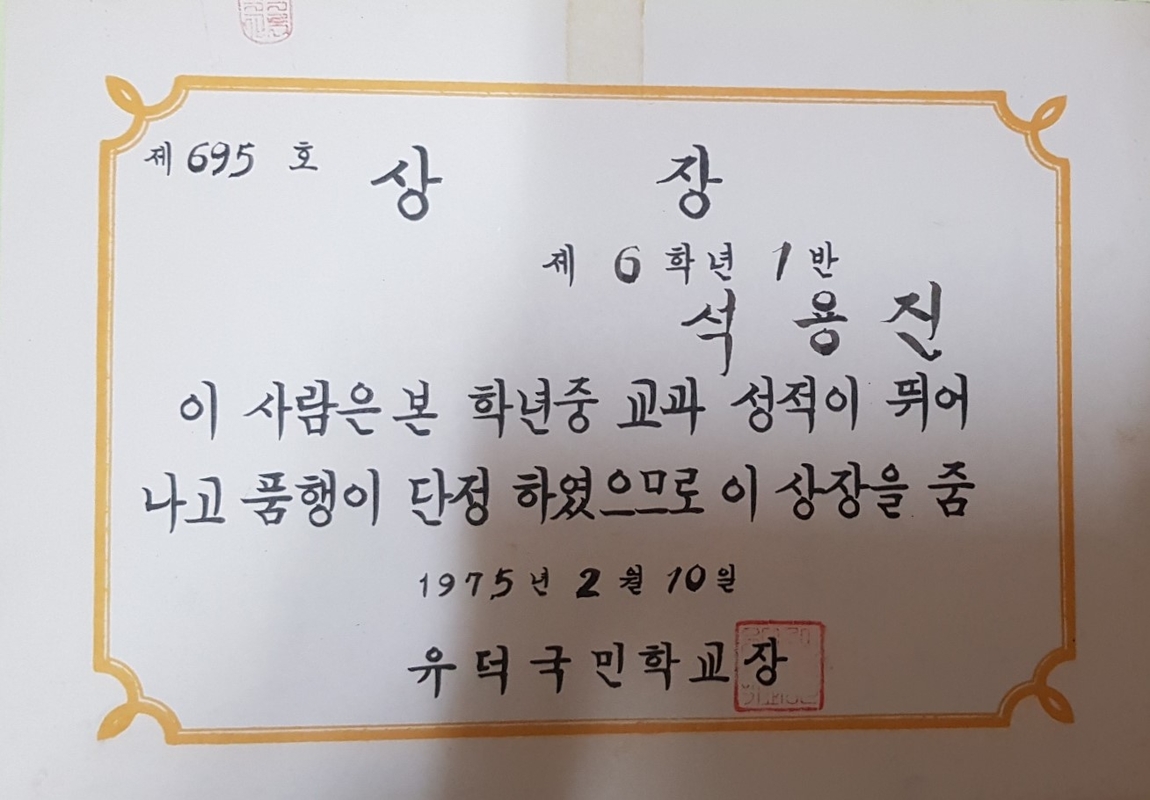 제 695 호
상 장
제 6 학년 1 반
석 용 진
이 사람은 본 학년중 교과 성적이 뛰어
나고 품행이 단정 하였으므로 이 상장을 줌
1975년 2 월 10일
유덕국민학교장